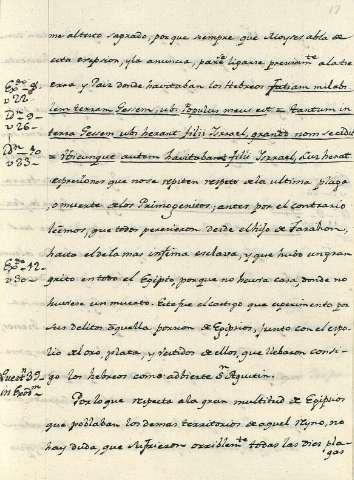 17
me al texto sagrado, porque siempre que Moyses abla de
esta erupsion, y la anuncia, parece ligarse previamte a la tie
Exo. 8.
rra, y Pais donde havitaban los Hebreos Fatiam milabi
v 22
lem terram Gessem, ubi Populus meus est = Tantum in
Dn 9
v 26
terra Gesem ubi herant filii Israel, grando nom secidit
Dn 10
= Ubicunque autem havitabant filii Isrrael, lux herat
v 23
expresiones que no se repiten respeto de la ultima plaga,
o muerte de los Primogenitos; antes por el contrario
leemos, que todos perecieron desde el hijo de Faraon,
hasta el de la mas infima esclava, y que hubo un gran
Exo. 12
v 30
grito en todo el Egipto, porque no havia casa, donde no
huviese un muerto. Este fue el castigo que esperimento por
sus delitos aquella porcion de Egipcios, junto con el espo
lio del oro, plata, y vestidos de ellos, que llebaron consi
Quest. 39
in Exod.
go los hebreos como adbierte Sn Agustin.
Por lo que respecta a la gran multitud de Egipcios
que poblaban los demas territorios de aquel Reyno, no
hay duda, que sufrieron orriblemte todas las dies pla
gas